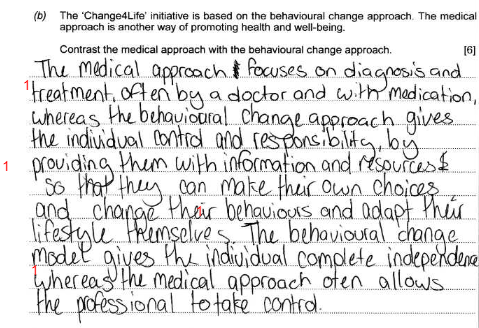 (b) The 'Change4Life' initiative is based on the behavioural change approach. The medical
approach is another way of promoting health and well-being.
Contrast the medical approach with the behavioural change approach. [6]
The medical approach focuses on diagnosis and
1 treatment, often by a doctor and with medication,
whereas the behavioural change approach gives
the individual control and responsibility, by
1 providing them with information and resources
so that they can make their own choices
and change their behaviours and adapt their
lifestyle themselves. The behavioural change
model gives the individual complete independence
whereas the medical approach oten allows
the professional to take control.